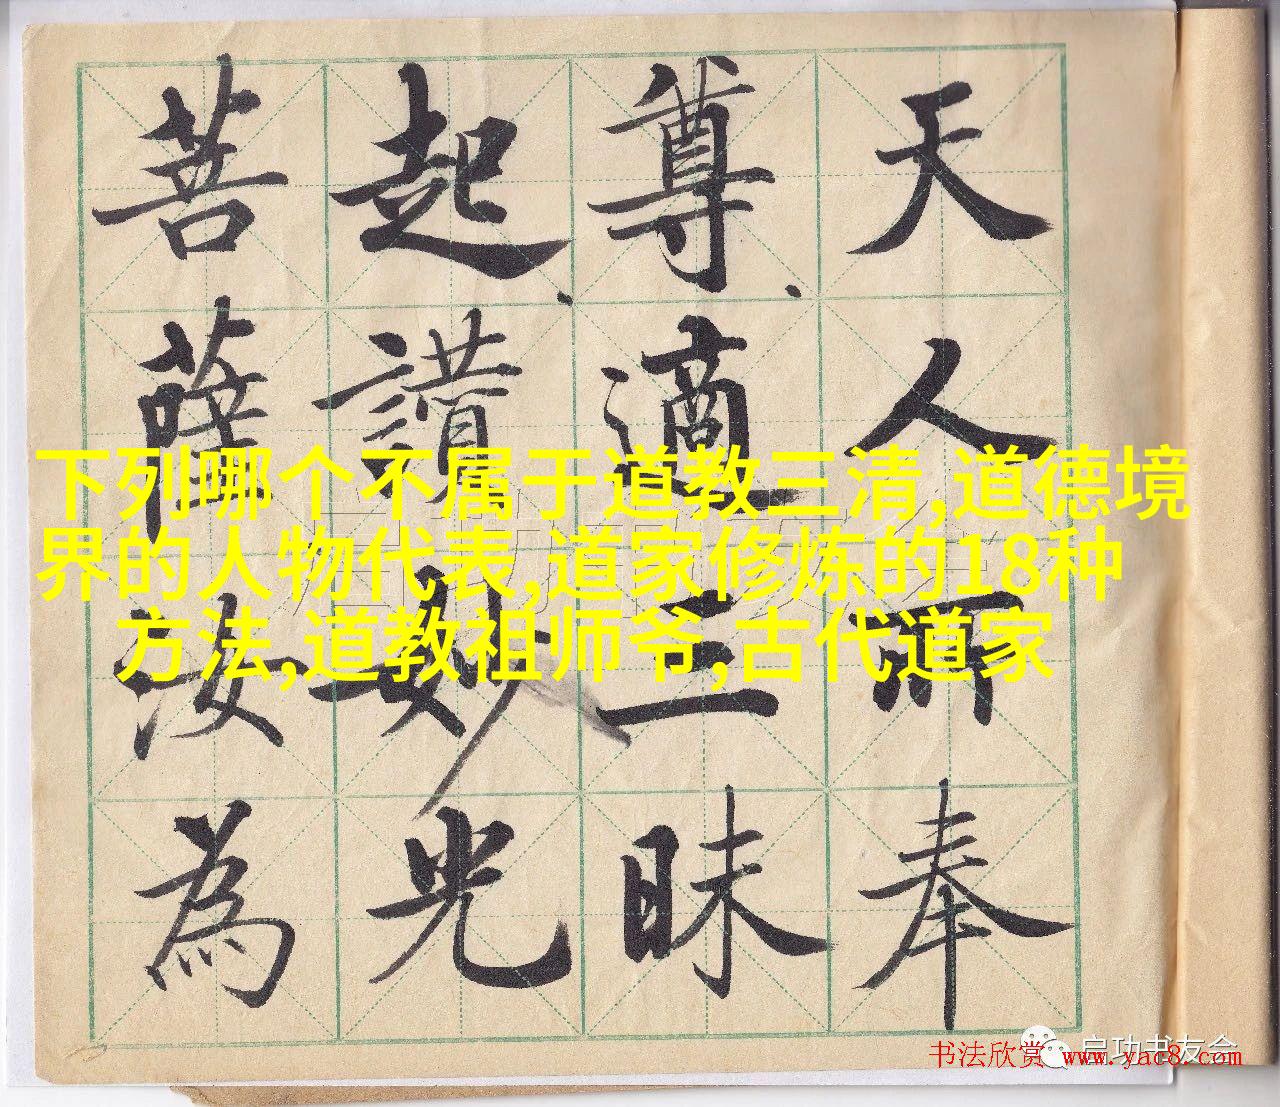 天人所奉
尊適三昧
起讚妙光
菩薩汝為
下列哪个不属于道教三清,道德境
界的人物代表,道家修炼的18种
方法,道教祖师爷,古代道家
启功书友会
书法欣赏 www.yac8.com